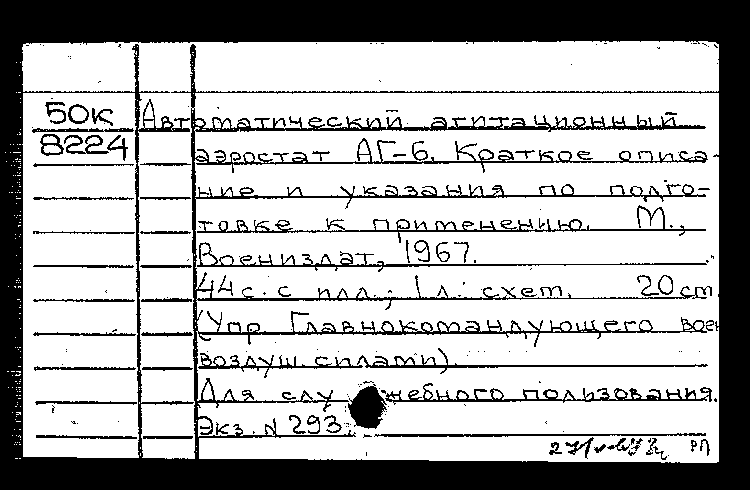 50К Автоматический агитационный
8224 аэростат АГ-6. Краткое описа-
ние и указания по подго-
товке к применению. М.,
Воениздат, 1967.
44 с. с илл.; 1 л. схем. 20 см.
(Упр Главнокомандующего воен
воздуш. силами).
Для служебного пользования.
Экз. N 293.
РП